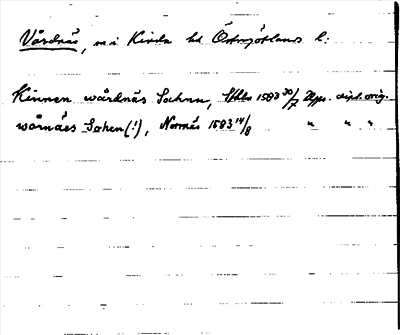 Vårdnäs, sn i Kinda hd Östergötlands l:
Kinnen wårdnäs Sochnn, Sthlm 1583 30/7 Upps. dipl. orig.
wårnäes Sohen(!), Norrnäs 1583 14/8 " " "